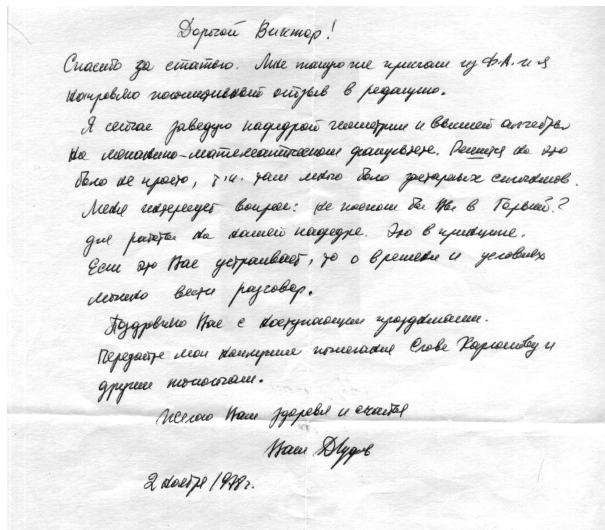 Дорогой Виктор!
Спасибо за статью. Мне такую же прислали из Ф.А. и я
направляю положительный отзыв в редакцию.
Я сейчас заведую кафедрой геометрии и высшей алгебры
на механико-математическом факультете. Решиться на это
было не просто, т.к. там много было застарелых
Меня интересует вопрос: не поехали бы Вы в Горький?
для работы на нашей кафедре. Это в принципе.
Если это Вас устраивает, то о времени и условиях
можно вести разговор.
Поздравляю Вас с наступающими праздниками.
Передайте мои наилучшие пожелания Славе Харламову и
другим топологам.
Желаю Вам здоровья и счастья
Ваш
2 ноября 1978г.